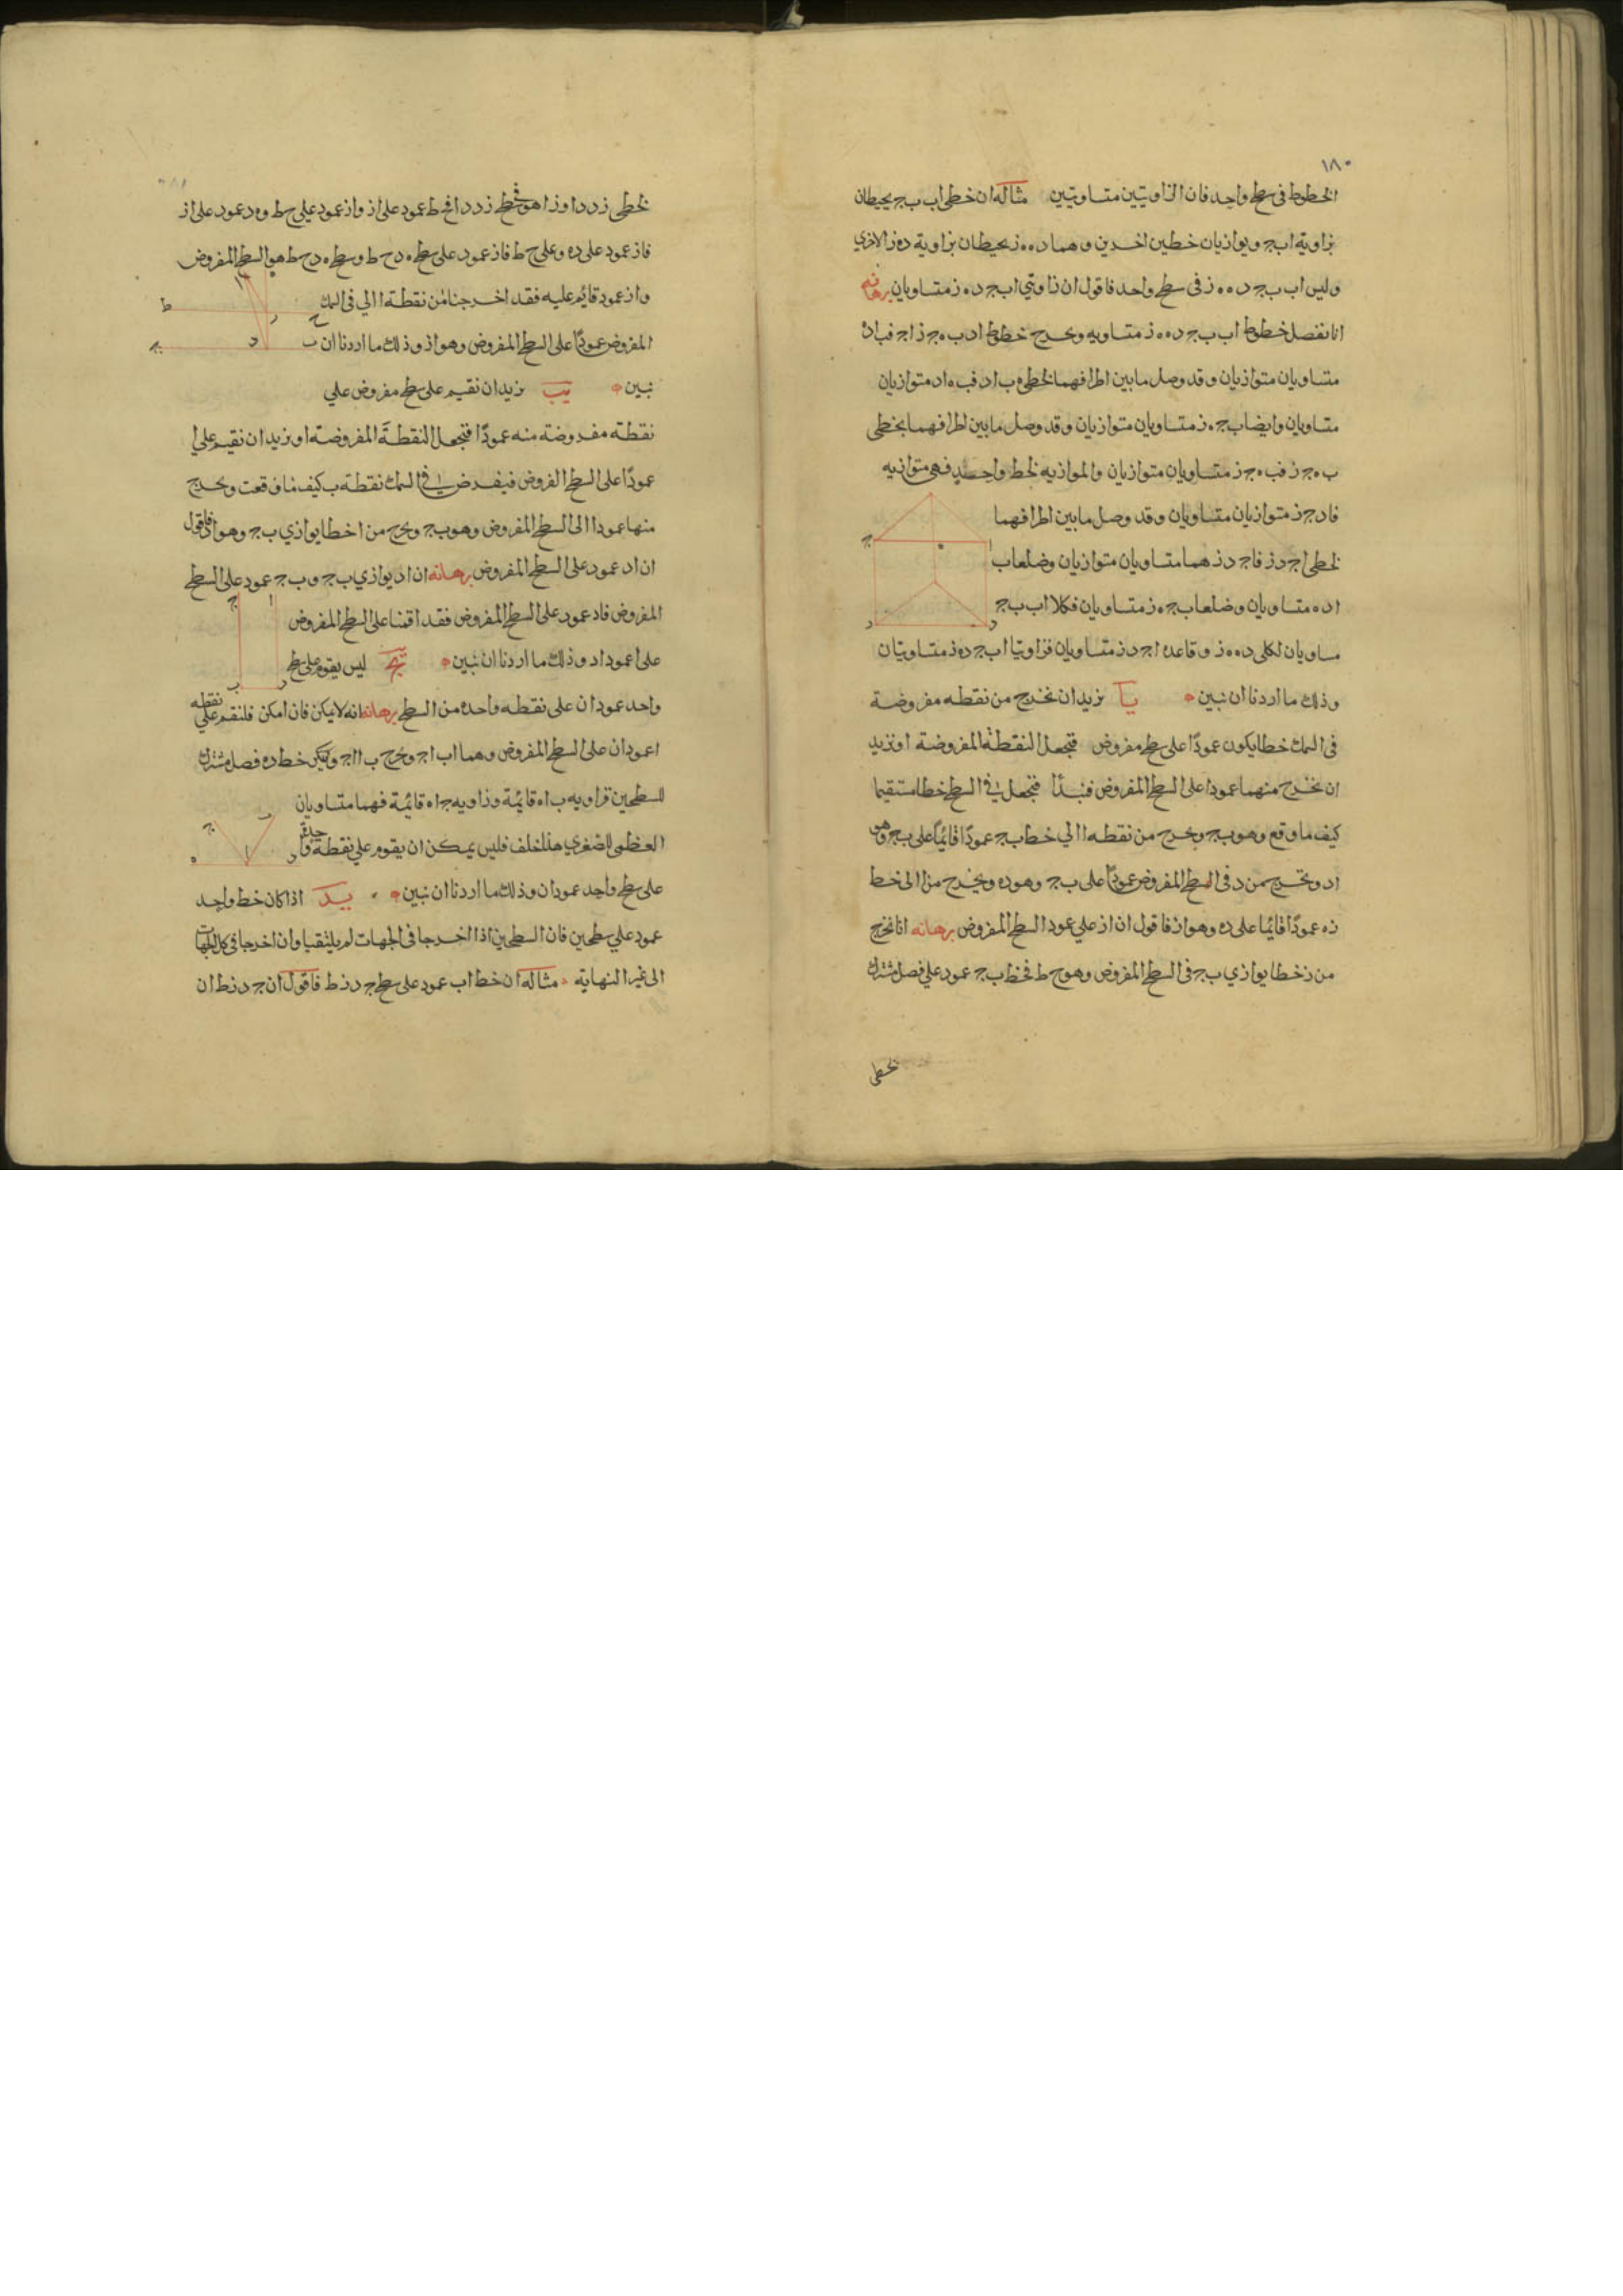 ١٨٠
الخطوط فى سطح واحد فان الزاويتين متساويتين مثاله ان خطى اب ب ج يحيطان
بزاوية اب ج ويوازيان خطين اخرين وهما د ه ه ز يحيطان بزاوية د ه ز الاخرى
وليس اب ب ج د ه ه ز فى سطح واحد فاقول ان زاويتى اب ج د ه ز متساويان برهانه
انا نفصل خطوط اب ب ج د ه ه ز متساويه ونخرج خطوط اد ب ه ج ز ا ج فب اد ه
متساويان متوازيان وقد وصل ما بين اطرافهما لخطى ه ب اد فب ه اد متوازيان
متساويان وايضا ب ج ه ز متساويان متوازيان وقد وصل ما بين اطرافهما بخطى
ب ه ج ز فب ه ج ز متساويان متوازيان والموازيه لخط واحد فهى متوازيه
فاد ج ز متوازيان متساويان وقد وصل ما بين اطرافهما
لخطى ا ج د ز فا ج د ز هما متساويان متوازيان وضلعا ب
ا د ه متساويان وضلعا ب ج ه ز متساويان فكلا اب ب ج
مساويان لكلى د ه ه ز وقاعده ا ج د ز متساويان فزاويتا اب ج د ه ز متساويتان
وذلك ما اردنا ان نبين يا نريد ان نخرج من نقطه مفروضة
فى السمك خطا يكون عمودًا على سطح مفروض فنجعل النقطة المفروضة ا ونريد
ان نخرج منهما عمودا على السطح المفروض فنبدأ فنجعل فى السطح خطا مستقيما
كيف ما وقع وهو ب ج ونخرج من نقطه ا الي خط ب ج عمودًا قائمًا على ب ج وهو
اد ونخرج من د فى السطح المفروض عمودًا على ب ج وهو د ه ونخرج من ا الى خط
د ه عمودًا قائما على د ه وهو از فاقول ان از علي عمود السطح المفروض برهانه انا نخرج
من ز خطا يوازي ب ج فى السطح المفروض وهو ح ط فخط ب ج عمود علي فصل مشترك
لخطى
لخطى ز د د ا و ز ا هو فخط ز د د ا فح ط عمود على از واز عمود علي ح ط و ه د عمود على از
فاز عمود على د ه وعلى ح ط فاز عمود على سطح ه د ح ط وسطح ه د ح ط هو السطح المفروض
واز عمود قائم عليه فقد اخرجنا من نقطة ا الي فى السمك
المفروض عمودًا على السطح المفروض وهو از وذلك ما اردنا ان
نبين يب نريد ان نقيم على سطح مفروض علي
نقطه مفروضة منه عمودًا فنجعل النقطة المفروضة ا ونريد ان نقيم علي ا
عمودًا على السطح المفروض فيفرض فى السمك نقطة ب كيف ما وقعت ونخرج
منها عمودا الى السطح المفروض وهو ب ج ونخرج من ا خطا يوازي ب ج وهو اد فاقول
ان اد عمود على السطح المفروض برهانه ان اد يوازي ب ج و ب ج عمود على السطح
المفروض فاد عمود على السطح المفروض فقد اقمنا على السطح المفروض
على ا عمود اد وذلك ما اردنا ان نبين يج ليس يقوم على سطح
واحد عمودان على نقطه واحده من السطح برهانه انه لا يمكن فان امكن فلنقم علي نقطه
ا عمودان على السطح المفروض وهما اب ا ج ونخرج ب ا ا ج وليكن خط د ه فصل مشترك
للسطحين فزاويه ب ا ه قائمة وزاويه ج ا ه قائمة فهما متساويان
العظمى للصغرى هذا خلف فليس يمكن ان يقوم علي نقطة واحدة
على سطح واحد عمودان وذلك ما اردنا ان نبين يد اذا كان خط واحد
عمود علي سطحين فان السطحين اذا اخرجا فى الجهات لم يلتقيا وان اخرجا فى كل الجهات
الى غير النهاية مثاله ان خط اب عمود على سطح ج د ز ط فاقول ان ج د ز ط ان